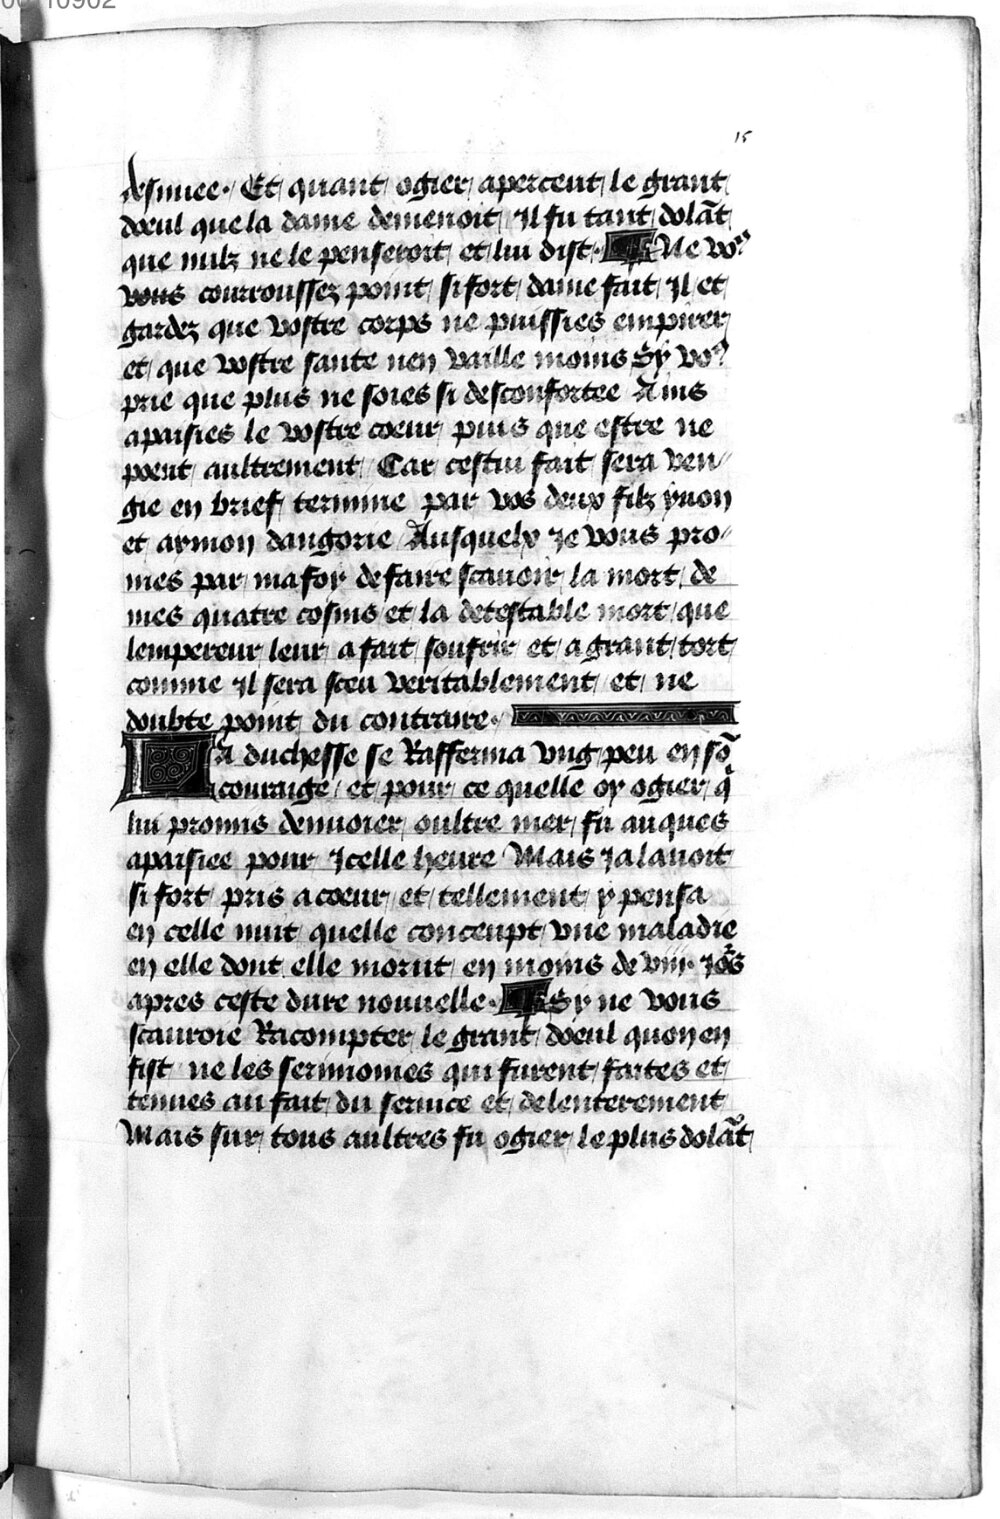 15
desinee. Et quant ogier apercent le grant
doeul que la dame demenoit Il fu tant dolāt
que nulz ne le penseroit et lui dist. Ne voꝰ
vous courroussez point si fort dame fait Il et
gardez que vostre corps ne puissies empirer
et que vostre sante nen vaille moins Sy voꝰ
prie que plus ne soies si desconfortee Ains
apaisies le vostre coeur puis que estre ne
poeut aultrement Car cestui fait sera ven-
gie en brief termine par vos deux filz yuon
et aymon dangorie Ausquelx Je vous pro-
mes par ma foy de faire scauoir la mort de
mes quatre cosins et la detestable mort que
lempereur leur a fait soufrir et a grant tort
comme Il sera sceu veritablement et ne
doubte point du contraire.
La duchesse se Rafferma vng peu en sō
couraige et pour ce quelle oy ogier q̄
lui promis denuoier oultre mer fu auques
apaisiee pour Icelle heure Mais Ja lauoit
si fort pris a coeur et tellement y pensa
en celle nuit quelle conceupt vne maladie
en elle dont elle morut en moins de viii. Jōs
apres ceste dure nouuelle. Sy ne vous
scauroie Racompter le grant doeul quon en
fist ne les serimonies qui furent faites et
tenues au fait du seruice et delenterement
Mais sur tous aultres fu ogier le plus dolāt